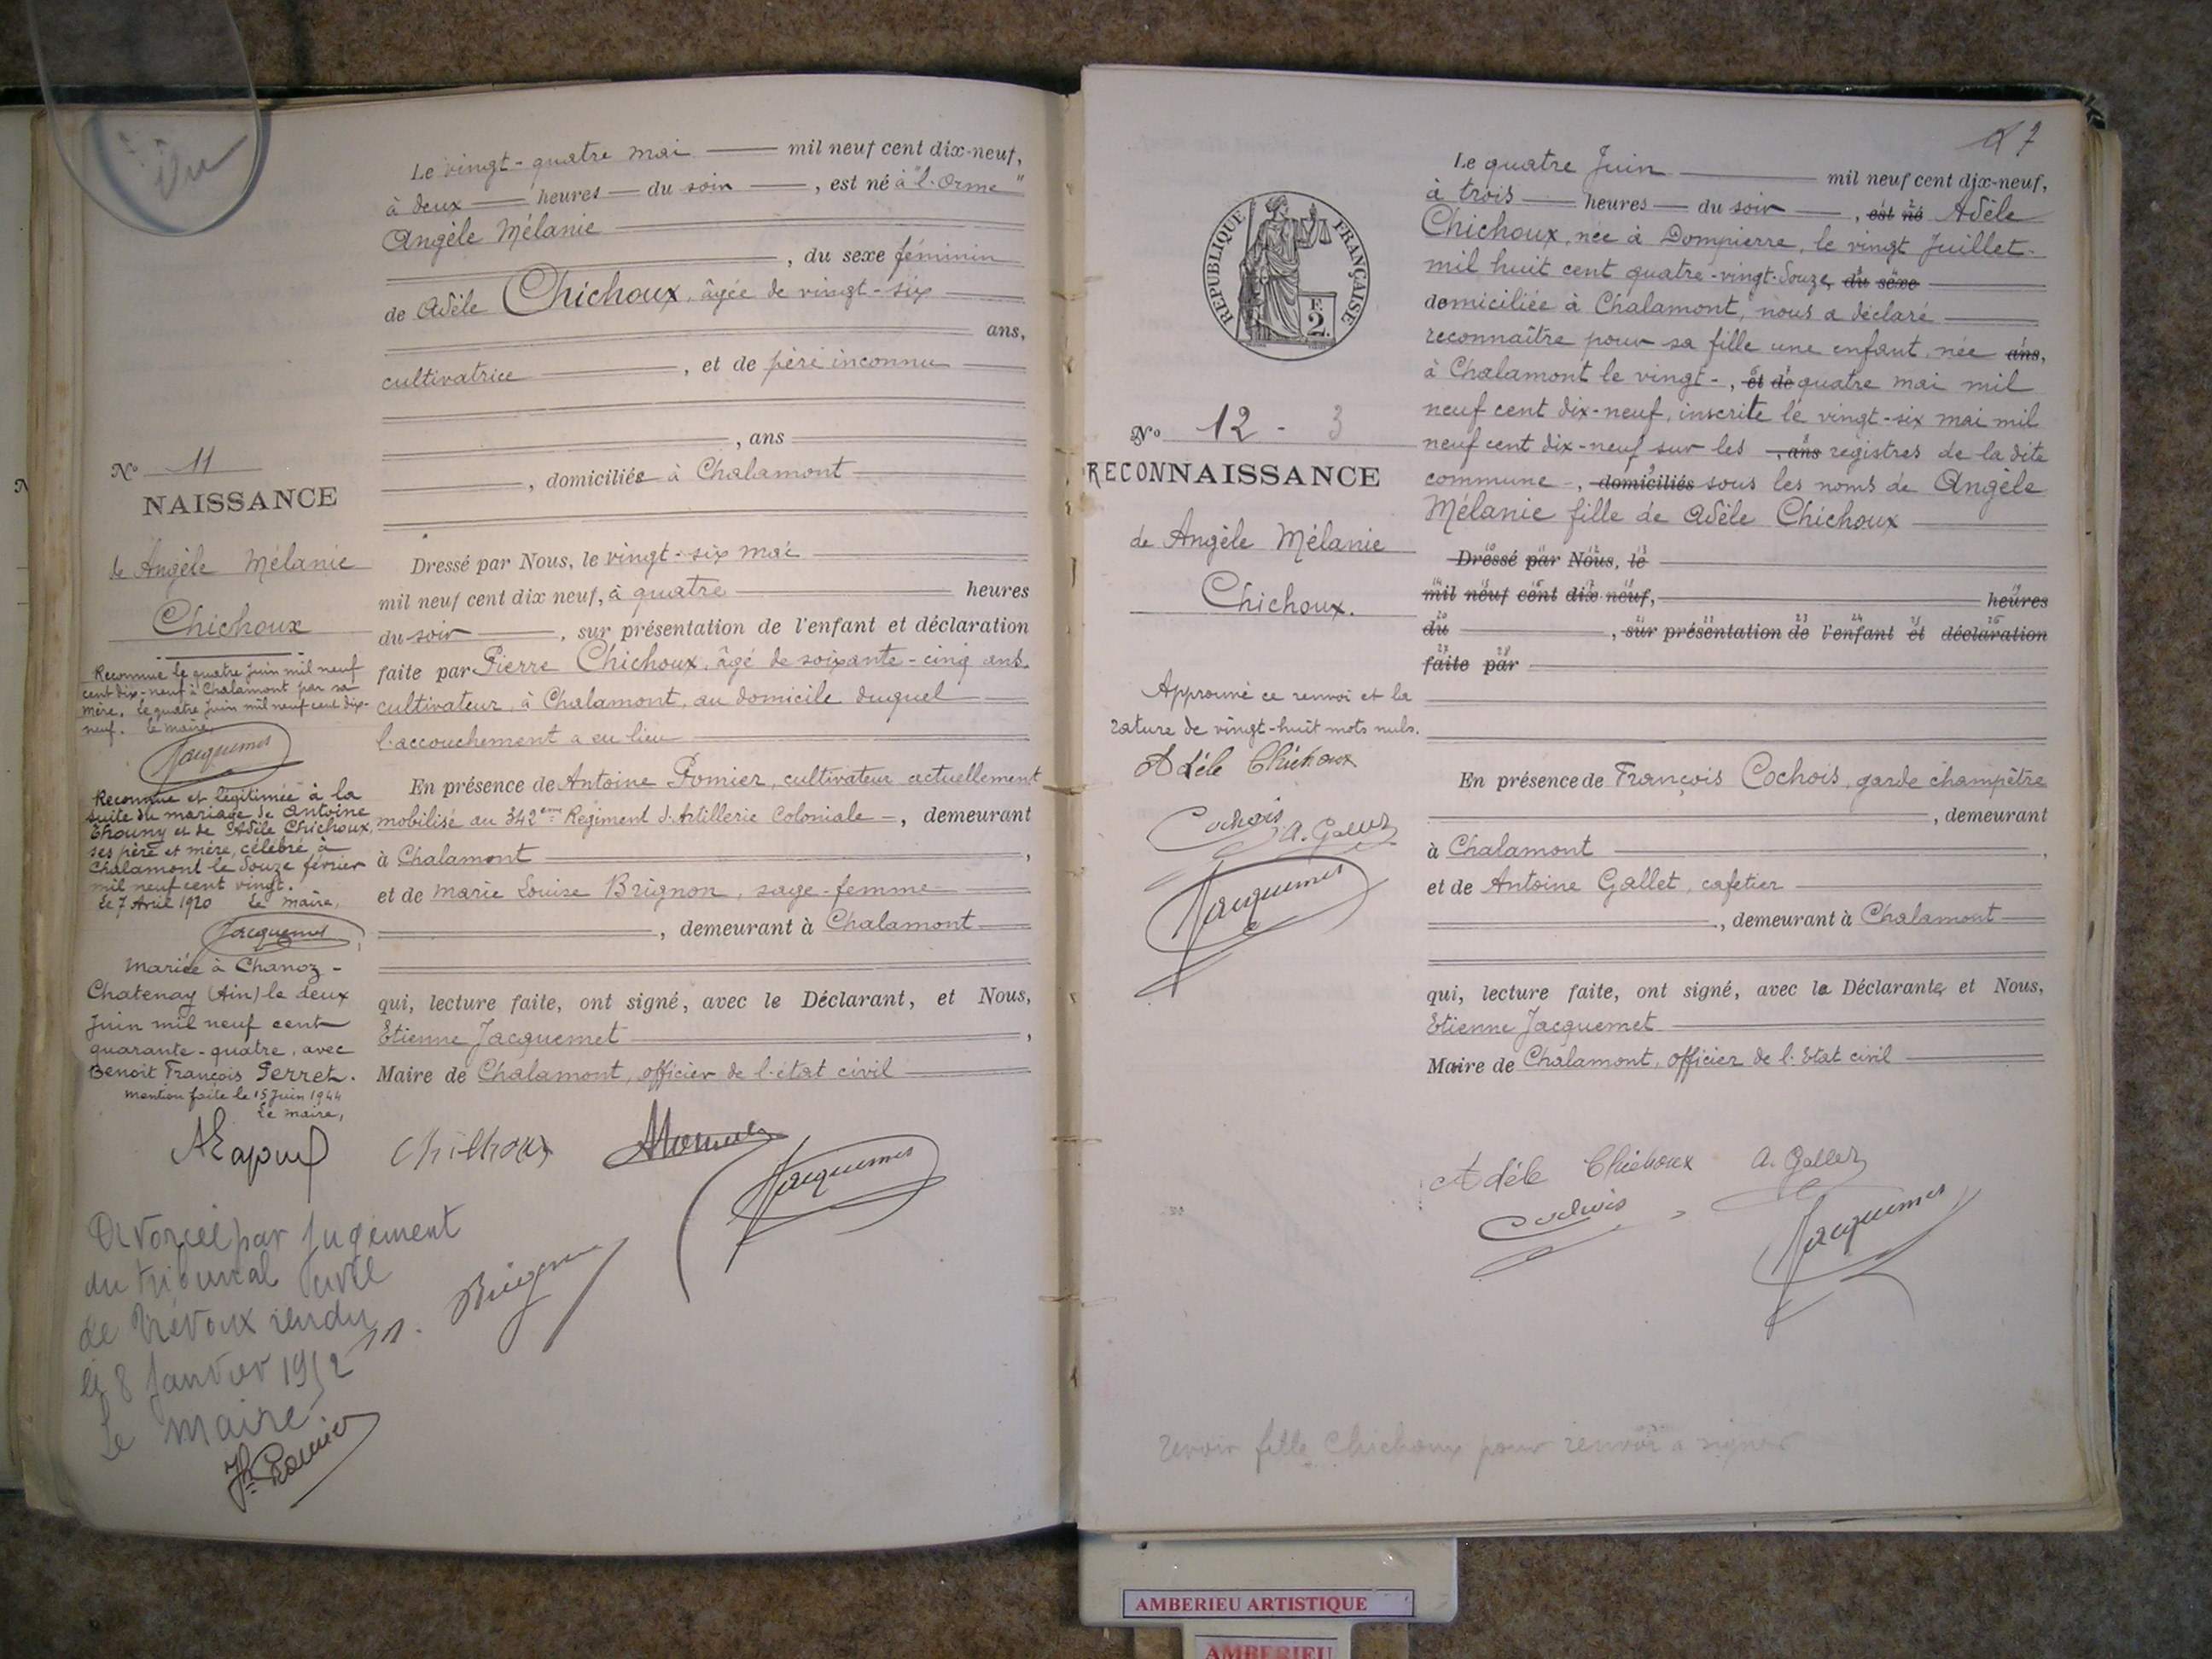 Le vingt-quatre mai mil neuf cent dix-neuf,
à deux heures du soir, est né à "l'Orme"
Angèle Mélanie
, du sexe féminin
de Adèle Chichoux, âgée de vingt-six
ans,
cultivatrice, et de père inconnu
, ans
, domiciliée à Chalamont
Dressé par Nous, le vingt-six mai
mil neuf cent dix neuf, à quatre heures
du soir, sur présentation de l'enfant et déclaration
faite par Pierre Chichoux, âgé de soixante-cinq ans.
cultivateur, à Chalamont, au domicile duquel
l'accouchement a eu lieu
En présence de Antoine Pomier, cultivateur actuellement
mobilisé au 342ème Régiment d'Artillerie Coloniale -, demeurant
à Chalamont,
et de Marie Louise Brignon, sage-femme
, demeurant à Chalamont
qui, lecture faite, ont signé, avec le Déclarant, et Nous,
Etienne Jacquemet,
Maire de Chalamont, officier de l'état civil
Chichoux
Jacquemet
M. Brignon
No 11
NAISSANCE
de Angèle Mélanie
Chichoux
Reconnue le quatre juin mil neuf
cent dix-neuf à Chalamont par sa
mère. Le quatre juin mil neuf cent dix-
neuf. Le maire,
Jacquemet
Reconnue et légitimée à la
suite du mariage de Antoine
Thouny et de Adèle Chichoux,
ses père et mère, célébré à
Chalamont le douze février
mil neuf cent vingt.
Le 7 Avril 1920 Le maire,
Jacquemet
Mariée à Chanoz-
Chatenay (Ain) le deux
Juin mil neuf cent
quarante-quatre, avec
Benoit François Perret.
Mention faite le 15 Juin 1944
Le maire,
Divorcée par jugement
du tribunal civil
de Trévoux rendu
le 8 Janvier 1952
Le Maire
7
Le quatre Juin mil neuf cent dix-neuf,
à trois heures du soir, est né Adèle
Chichoux, née à Dompierre, le vingt Juillet
mil huit cent quatre-vingt-douze, du sexe
domiciliée à Chalamont, nous a déclaré
reconnaître pour sa fille une enfant née ans,
à Chalamont le vingt-, et de quatre mai mil
neuf cent dix-neuf, inscrite le vingt-six mai mil
neuf cent dix-neuf sur les , ans registres de la dite
commune -, domiciliés sous les noms de Angèle
Mélanie fille de Adèle Chichoux
Dressé par Nous, le
mil neuf cent dix neuf, heures
du , sur présentation de l'enfant et déclaration
faite par
En présence de François Cochois, garde champêtre
, demeurant
à Chalamont,
et de Antoine Gallet, cafetier
, demeurant à Chalamont
qui, lecture faite, ont signé, avec la Déclarante, et Nous,
Etienne Jacquemet
Maire de Chalamont, officier de l'Etat civil
Adèle Chichoux A. Gallet
Cochois
Jacquemet
RÉPUBLIQUE FRANÇAISE
E
2.
No 12 - 3
RECONNAISSANCE
de Angèle Mélanie
Chichoux.
Approuvé ce renvoi et la
rature de vingt-huit mots nuls.
Adèle Chichoux
Cochois A. Gallet
Jacquemet
revoir fille Chichoux pour renvoi à signer
AMBERIEU ARTISTIQUE
AMBERIEU